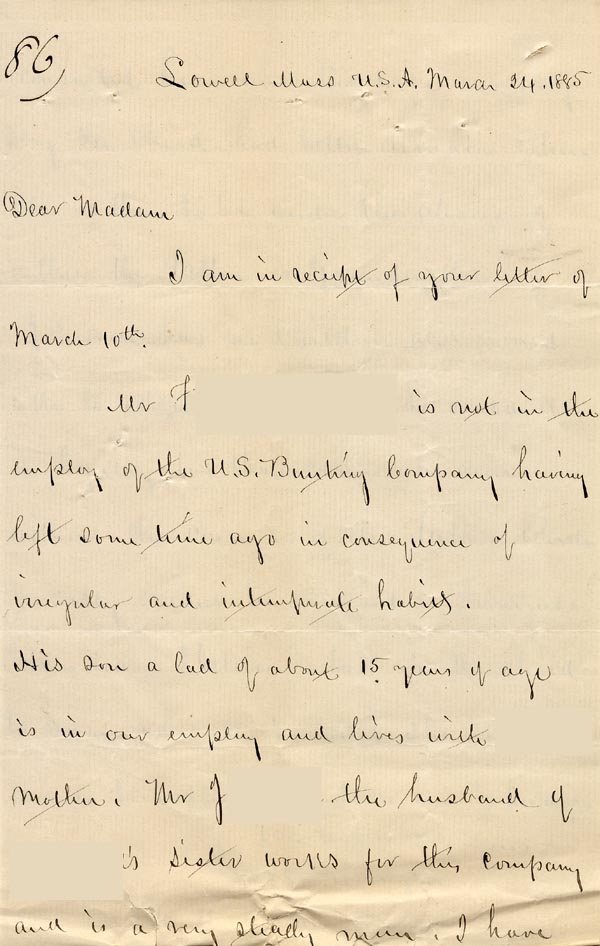 86
Lowell Mass U.S.A. March 24. 1885
Dear Madam
I am in receipt of your letter of
March 10th.
Mr F is not in the
employ of the U.S. Bunting Company having
left some time ago in consequence of
irregular and intemperate habits.
His son a lad of about 15 years of age
is in our employ and lives with
Mother. Mr J the husband of
's sister works for this company
and is a very steady man. I have